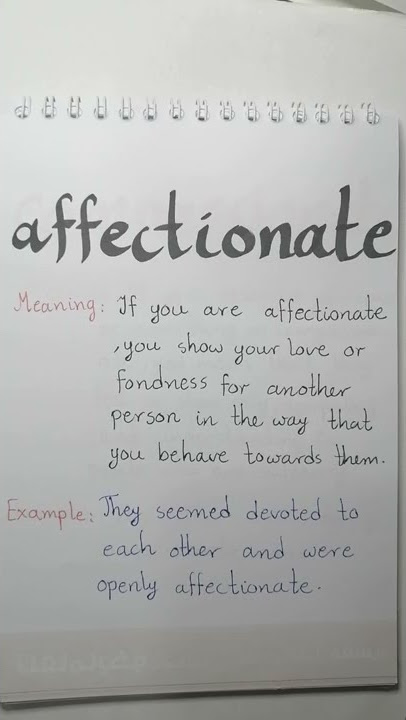 affectionate
Meaning: If you are affectionate
,you show your love or
fondness for another
person in the way that
you behave towards them.
Example: They seemed devoted to
each other and were
openly affectionate.